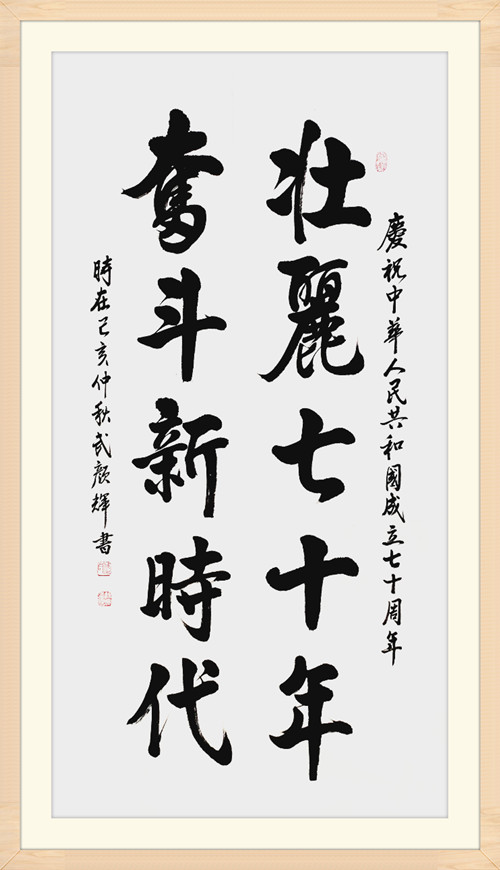 慶祝中華人民共和國成立七十周年
壯麗七十年
奮斗新時代
時在己亥仲秋武顏輝書